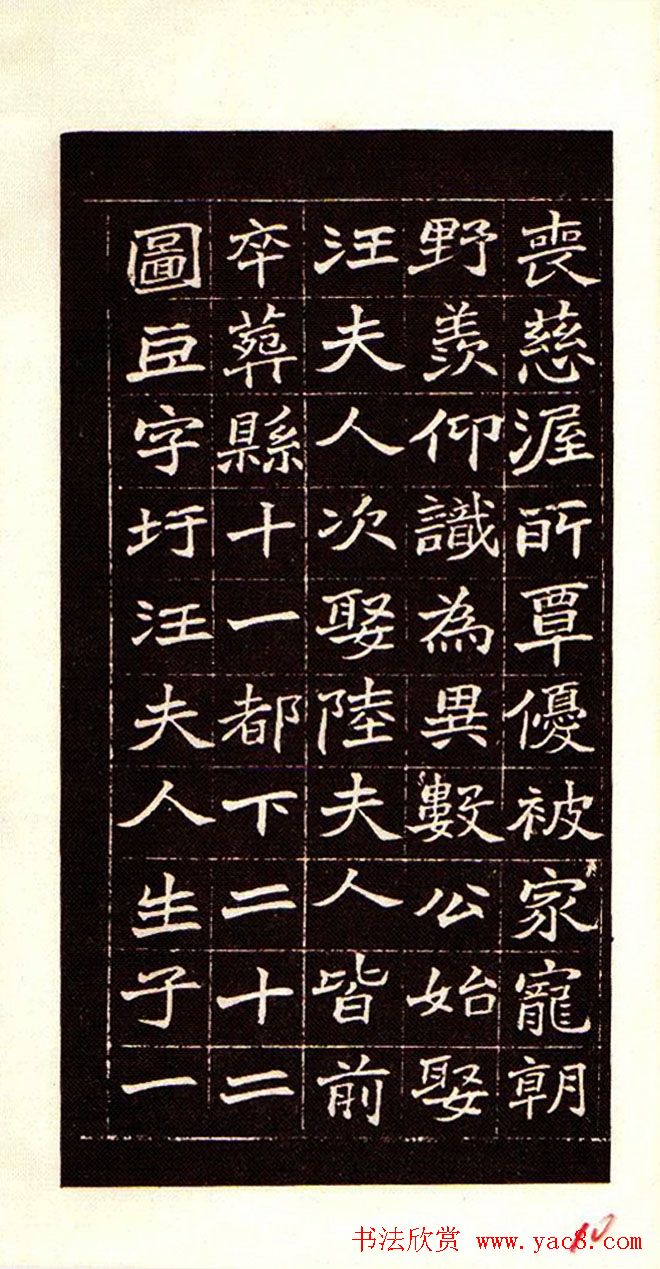 喪慈渥所覃優被家寵朝
野羨仰識為異數公始娶
汪夫人次娶陸夫人皆前
卒葬縣十一都下二十二
圖豆字圩汪夫人生子一
书法欣赏 www.yac8.com
10